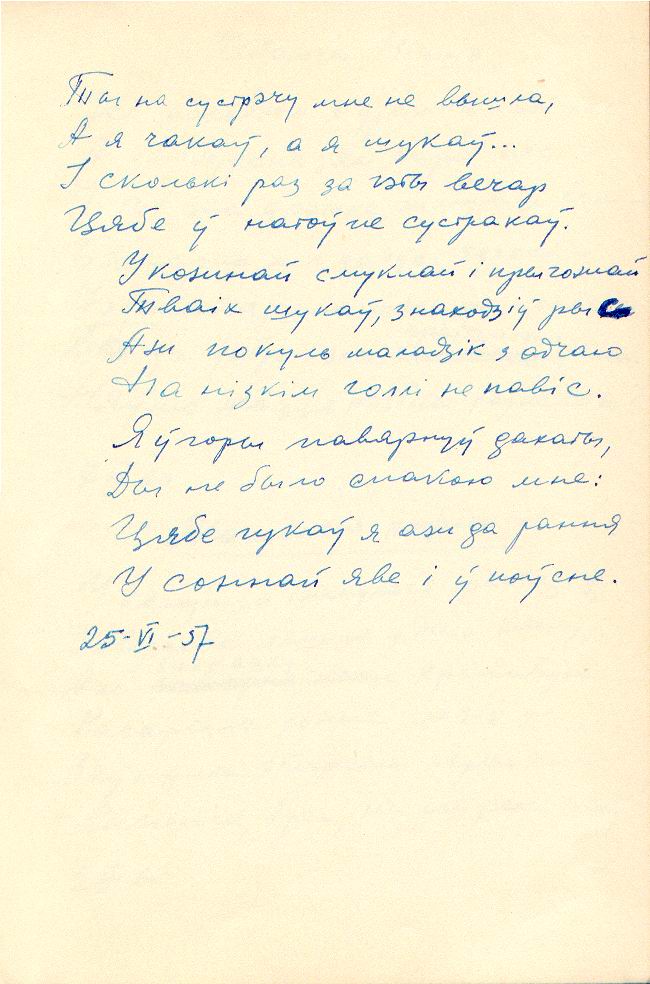 Ты на сустрэчу мне не вышла,
А я чакаў, а я шукаў...
І сколькі раз за гэты вечар
Цябе ў натоўпе сустракаў.
У кожнай смуклай і прыгожай
Тваіх шукаў, знаходзіў рыс
Аж покуль маладзік з адчаю
На нізкім голлі не павіс.
Я ў горы павярнуў дахаты,
Ды не было спакою мне:
Цябе гукаў я аж да рання
У соннай яве і ў поўсне.
25-VI-57